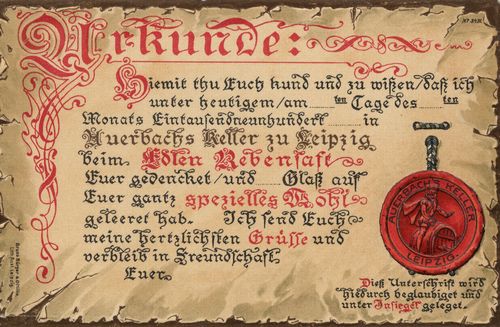 Urkunde:
Hiemit thu Euch kund und zu wißen/daß ich
unter heutigem/am ten Tage des ten
Monats Eintausendneunhundert in
Auerbachs Keller zu Leipzig
beim Edlen Rebensaft
Euer gedencket/und Glaß auf
Euer gantz spezielles Wohl
geleeret hab. Ich send Euch
meine hertzlichsten Grüsse und
verbleib in Freundschaft.
Euer.
AUERBACHS KELLER
LEIPZIG.
Dieß Unterschrift wird
hiedurch beglaubiget und
unter Insiegel geleget.